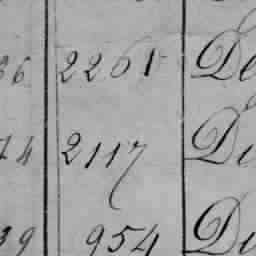 36 2261 De
74 2117 De
39 954 De